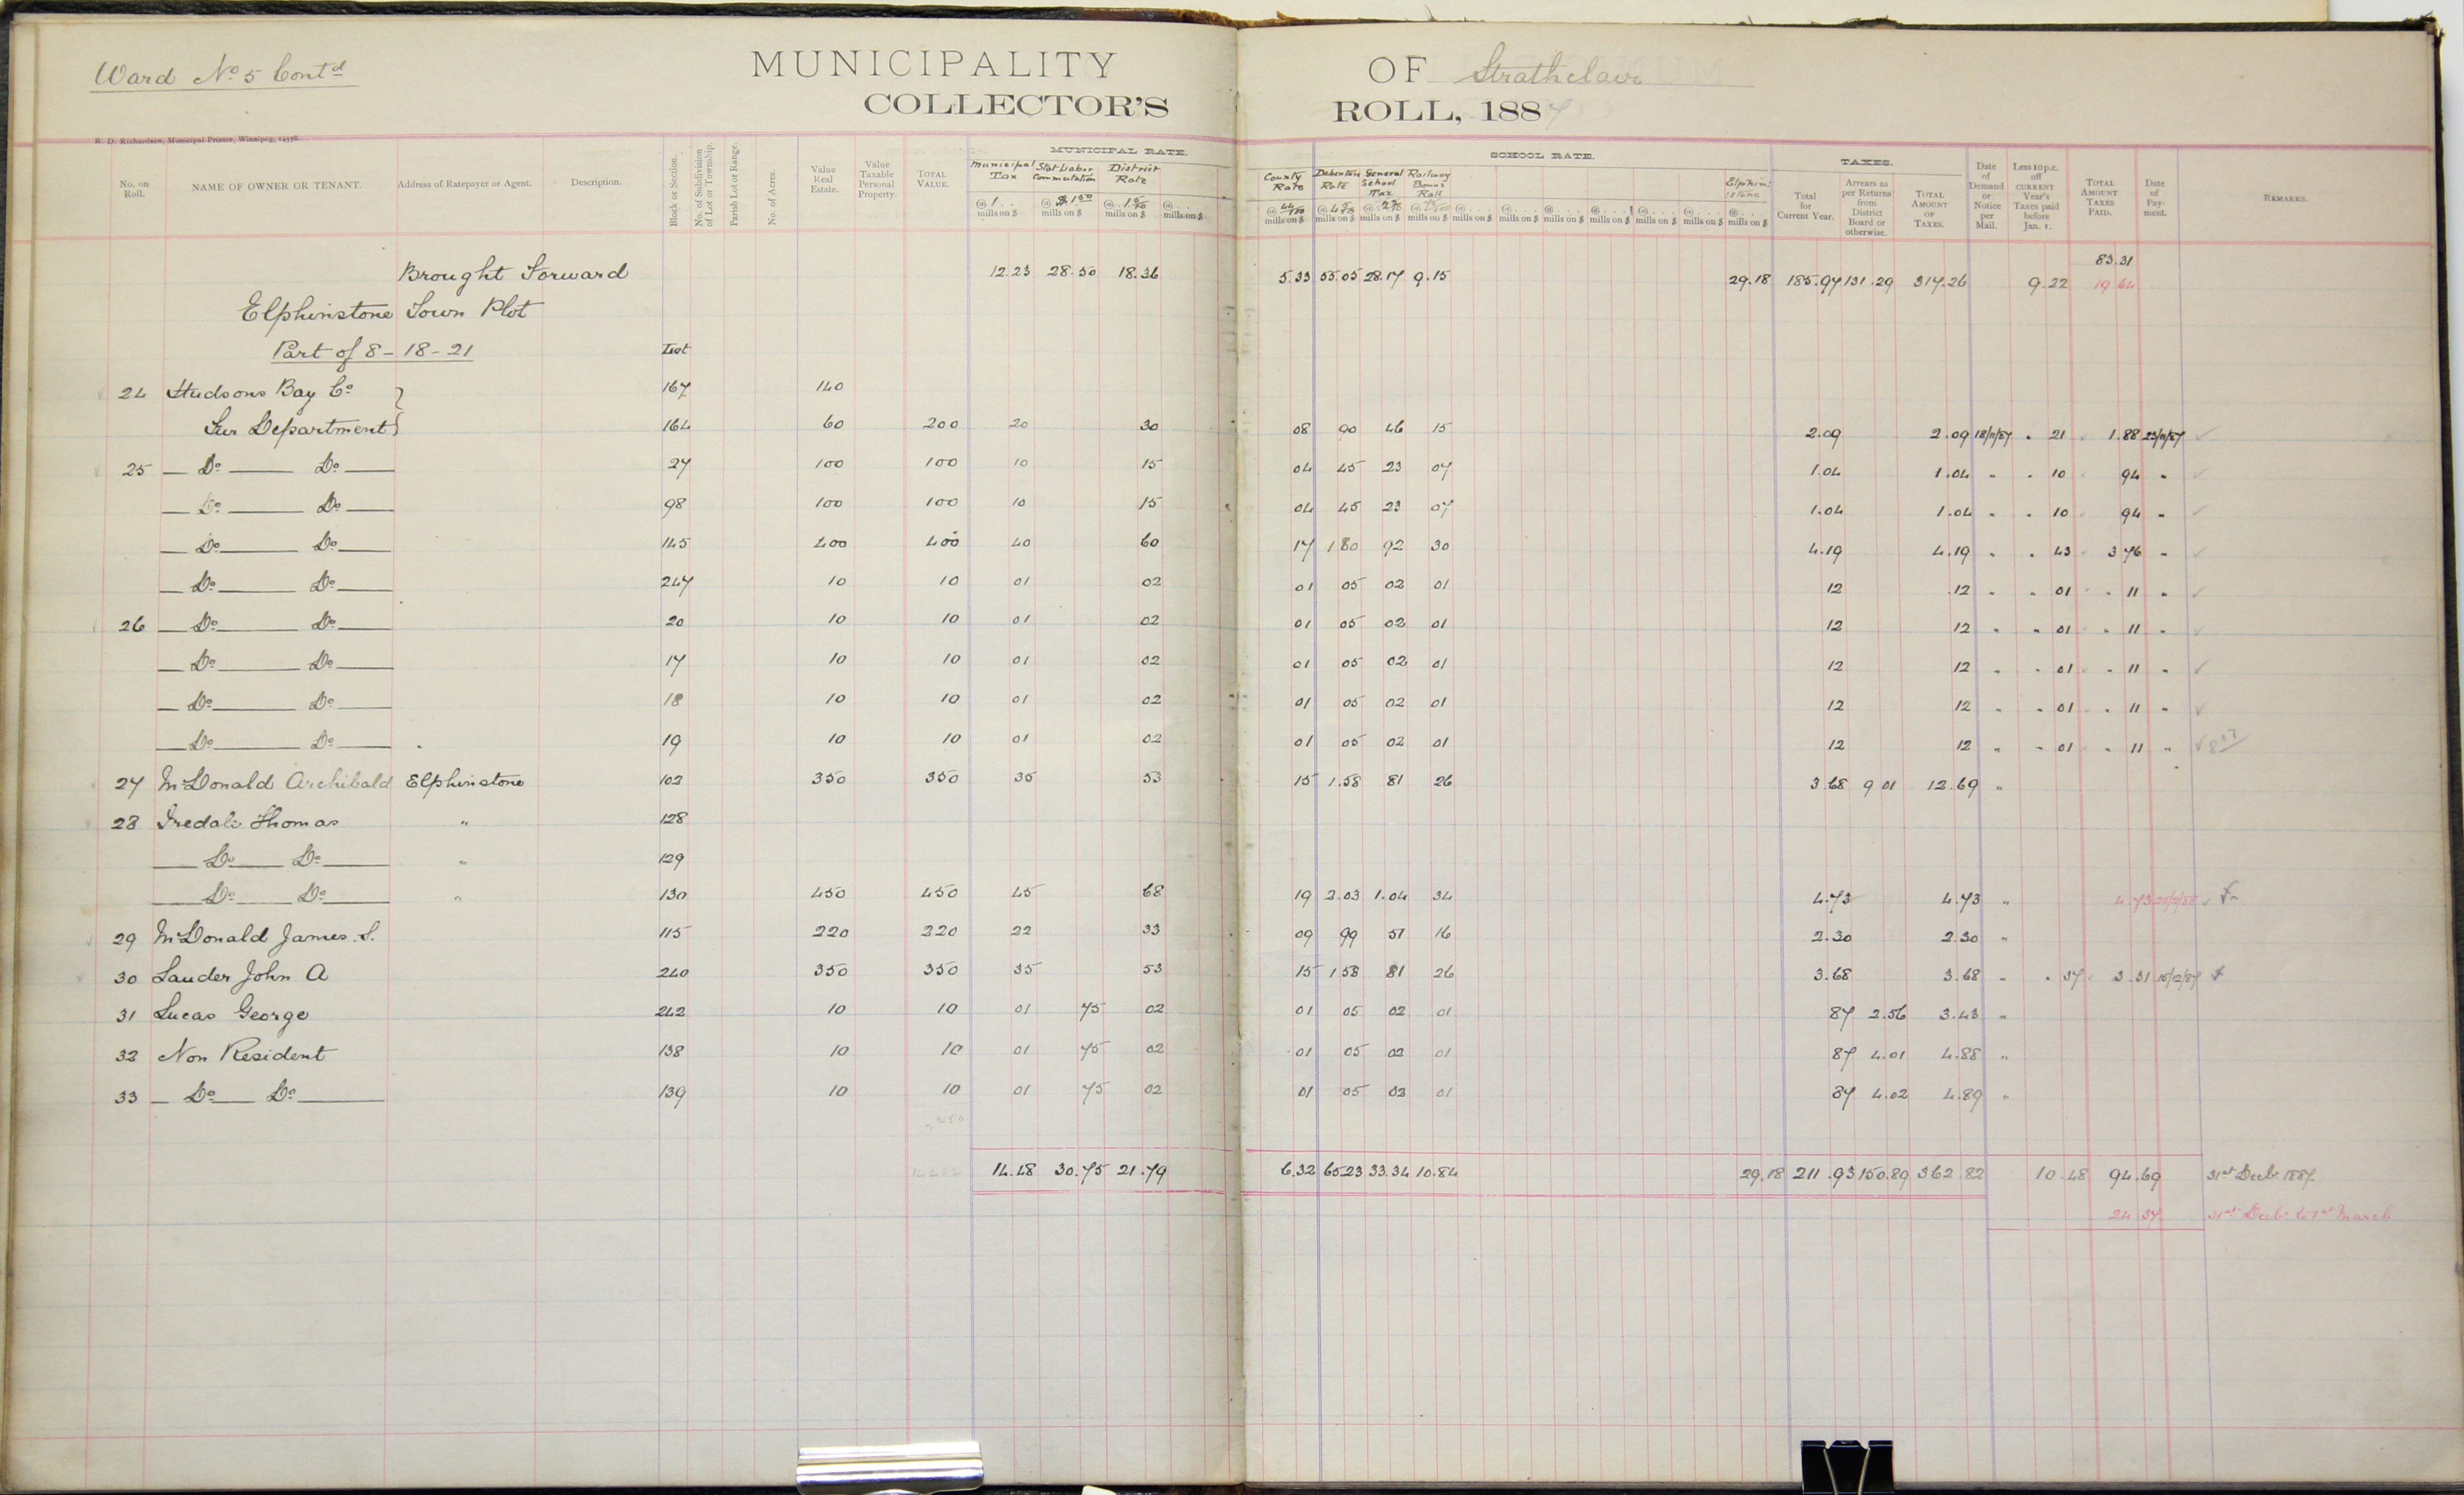 Ward No 5 Contd
MUNICIPALITY OF Strathclair
COLLECTOR'S ROLL, 1887
R. D. Richardson, Municipal Printer, Winnipeg, 14578.
MUNICIPAL RATE. SCHOOL RATE. TAXES.
No. on Roll. NAME OF OWNER OR TENANT. Address of Ratepayer or Agent. Description. Block or Section. No. of Subdivision of Lot or Township. Parish Lot or Range. No. of Acres. Value Real Estate. Value Taxable Personal Property. TOTAL VALUE. Municipal Tax @ 1 mills on $ Stat Labor Commutation @ $1.00 mills on $ District Rate @ 1 5/10 mills on $ @ mills on $ County Rate @ 44/100 mills on $ Debenture Rate @ 4 5/10 mills on $ General School Tax @ 2 3/10 mills on $ Railway Bonus Rate @ mills on $ @ mills on $ @ mills on $ @ mills on $ @ mills on $ @ mills on $ @ mills on $ Elphinstone @ mills on $ Total for Current Year. Arrears as per Returns from District Board or otherwise. TOTAL AMOUNT OF TAXES. Date of Demand or Notice per Mail. Less 10 p.c. off CURRENT Year's Taxes paid before Jan. 1. TOTAL AMOUNT TAXES PAID. Date of Payment. REMARKS.
83.31
Brought Forward 12.23 28.50 18.36 5.33 55.05 28.17 9.15 29.18 185.97 131.29 317.26 9.22 19 64
Elphinstone Town Plot
Part of 8 - 18 - 21 Lot
24 Hudsons Bay Co } 167 140
Fur Department } 164 60 200 20 30 08 90 46 15 2.09 2.09 18/11/87 " 21 1.88 23/11/87 ✓
25 — Do — Do — 27 100 100 10 15 04 45 23 07 1.04 1.04 " " 10 94 " ✓
— Do — Do — 98 100 100 10 15 04 45 23 07 1.04 1.04 " " 10 94 " ✓
— Do — Do — 145 400 400 40 60 17 1 80 92 30 4.19 4.19 " " 43 3 76 " ✓
— Do — Do — 247 10 10 01 02 01 05 02 01 12 .12 " " 01 " 11 " ✓
26 — Do — Do — 20 10 10 01 02 01 05 02 01 12 12 " " 01 " 11 " ✓
— Do — Do — 17 10 10 01 02 01 05 02 01 12 12 " " 01 " 11 " ✓
— Do — Do — 18 10 10 01 02 01 05 02 01 12 12 " " 01 " 11 " ✓
— Do — Do — 19 10 10 01 02 01 05 02 01 12 12 " " 01 " 11 " ✓ 8 07
27 McDonald Archibald Elphinstone 102 350 350 35 53 15 1.58 81 26 3.68 9 01 12.69 "
28 Iredale Thomas " 128
— Do — Do — " 129
— Do — Do — " 130 450 450 45 68 19 2.03 1.04 34 4.73 4.73 " 4.73
29 McDonald James S. 115 220 220 22 33 09 99 51 16 2.30 2.30 "
30 Lauder John A 240 350 350 35 53 15 1 58 81 26 3.68 3.68 " " 37 3.31 15/12/87
31 Lucas George 242 10 10 01 75 02 01 05 02 01 87 2.56 3.43 "
32 Non Resident 138 10 10 01 75 02 01 05 02 01 87 4.01 4.88 "
33 — Do — Do — 139 10 10 01 75 02 01 05 02 01 87 4.02 4.89 "
14.48 30.75 21.79 6.32 65 23 33.34 10.84 29.18 211.93 150.89 362.82 10.48 94.69 31st Decbr 1887.
24.37 31st Decbr to 1st March